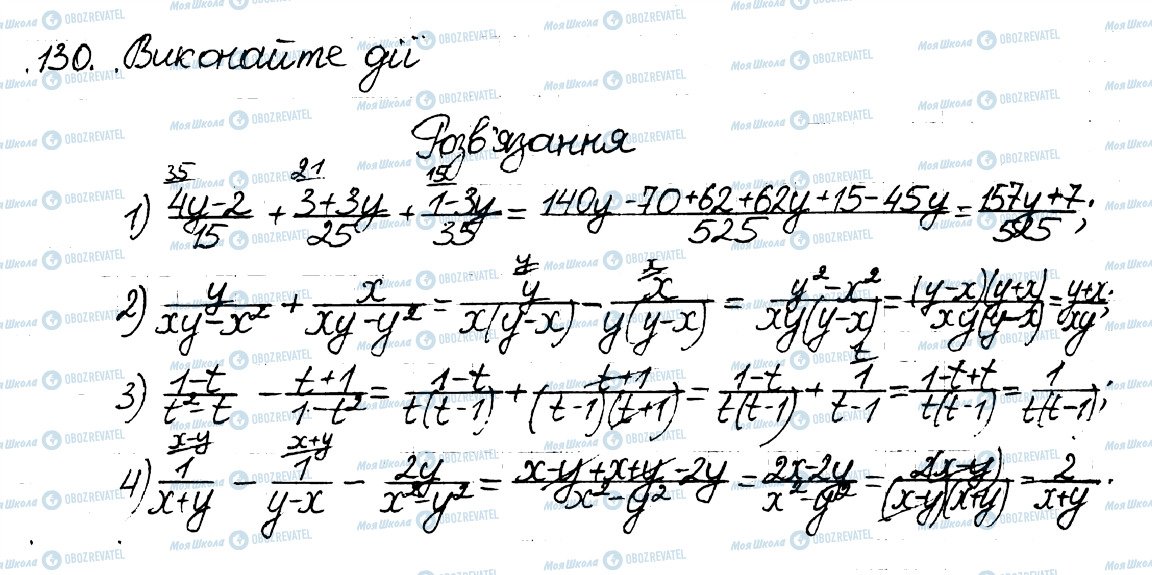 130. Виконайте дії
Розв'язання
1) (4y-2)/15 + (3+3y)/25 + (1-3y)/35 = (140y-70+62+62y+15-45y)/525 = (157y+7)/525;
2) y/(xy-x²) + x/(xy-y²) = y/(x(y-x)) - x/(y(y-x)) = (y²-x²)/(xy(y-x)) = ((y-x)(y+x))/(xy(y-x)) = (y+x)/(xy);
3) (1-t)/(t²-t) - (t+1)/(1-t²) = (1-t)/(t(t-1)) + (t+1)/((t-1)(t+1)) = (1-t)/(t(t-1)) + 1/(t-1) = (1-t+t)/(t(t-1)) = 1/(t(t-1));
4) 1/(x+y) - 1/(y-x) - 2y/(x²-y²) = (x-y+x+y-2y)/(x²-y²) = (2x-2y)/(x²-y²) = (2(x-y))/((x-y)(x+y)) = 2/(x+y).